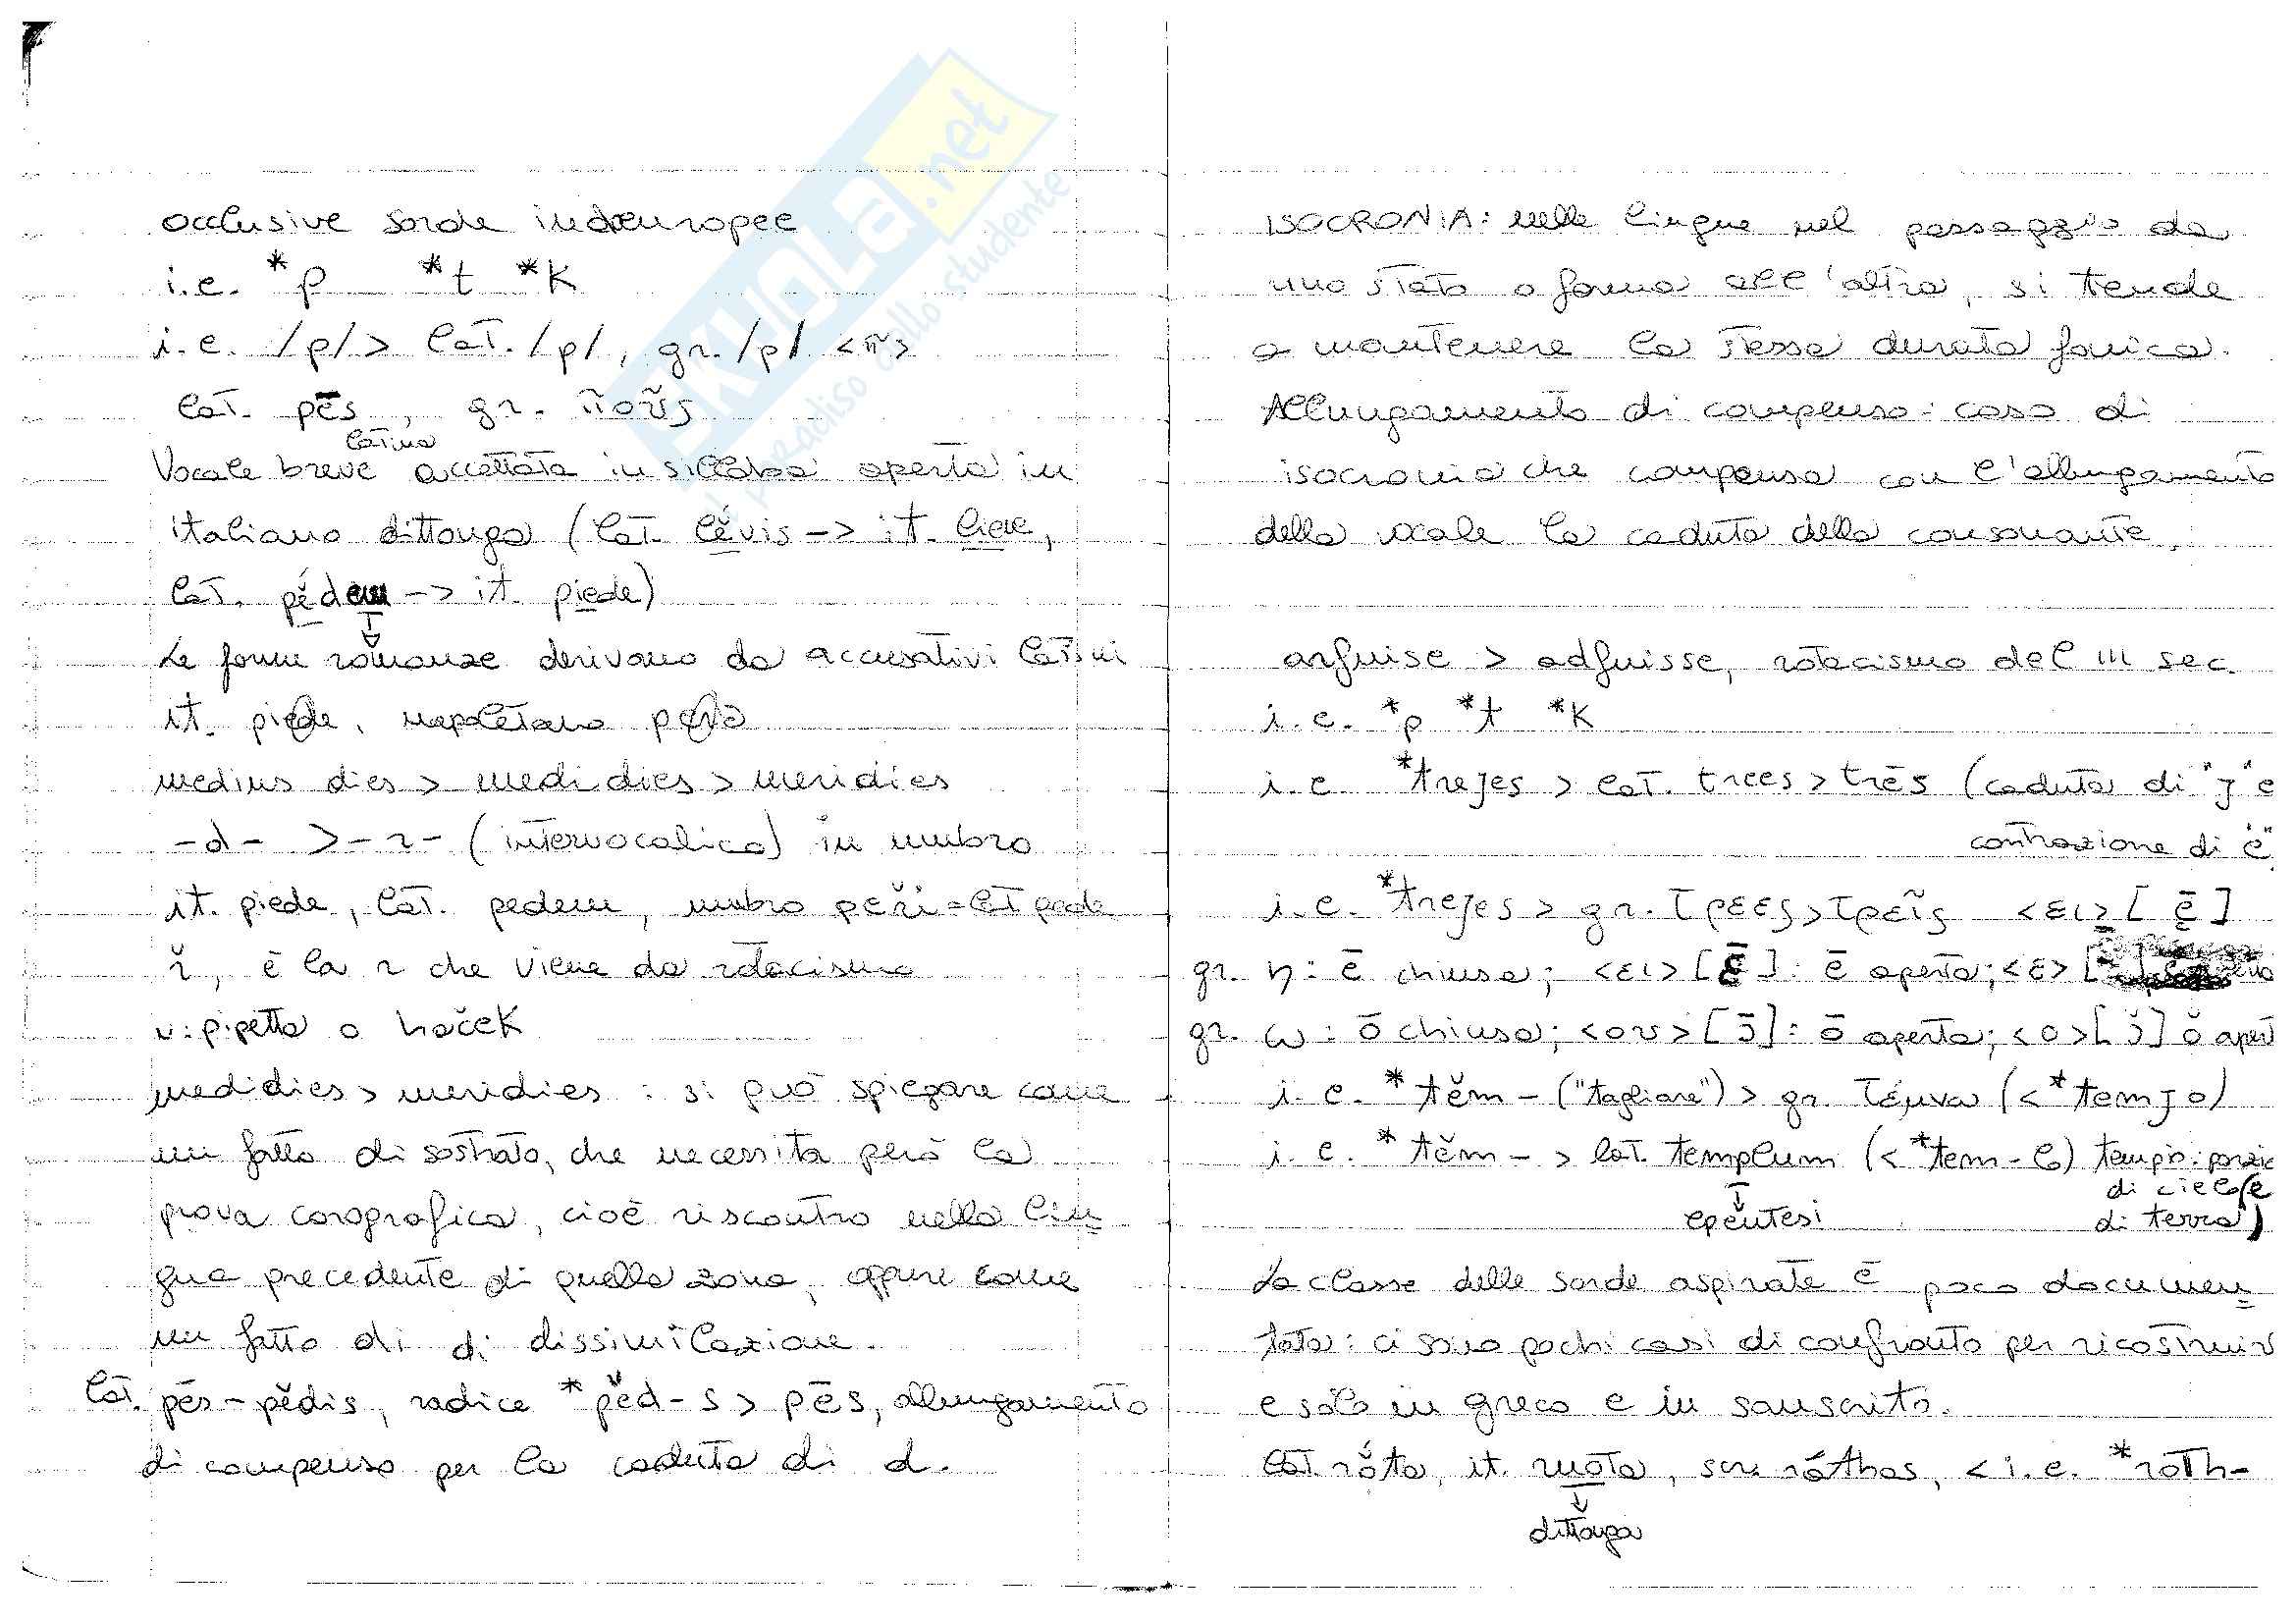 SKUOLA.net
il paradiso dello studente
occlusive sorde indoeuropee
i.e. *p *t *k
i.e. /p/ > lat. /p/, gr. /p/ <π>
lat. pēs, gr. πούς
latina
Vocale breve accettata in sillaba aperta in
italiano dittonga (lat. lĕvis -> it. lieve,
lat. pĕdem -> it. piede)
Le forme romanze derivano da accusativi latini
it. piede, napoletano
medius dies > medidies > meridies
-d- > -r- (intervocalica) in umbro
it. piede, lat. pedem, umbro peři = lat pede
ř, è la r che viene da rotacismo
v: pipetta o haček
medidies > meridies : si può spiegare come
un fatto di sostrato, che necessita però la
prova corografica, cioè riscontro nella lin
gua precedente di quella zona, oppure come
un fatto di di dissimilazione.
lat. pēs - pĕdis, radice *pĕd-s > pēs, allungamento
di compenso per la caduta di d.
ISOCRONIA: nelle lingue nel passaggio da
uno stato o forma all'altra, si tende
a mantenere la stessa durata fonica.
Allungamento di compenso: caso di
isocronia che compensa con l'allungamento
della vocale la caduta della consonante.
arfuise > adfuisse, rotacismo del III sec.
i.e. *p *t *k
i.e. *trejes > lat. trees > trēs (caduta di "j" e
contrazione di "e"
i.e. *trejes > gr. τρεες > τρεῖς <ει> [ẹ̄]
gr. η: ē chiusa; <ει> [ε̄]: ē aperta; <ε>
gr. ω: ō chiusa; <ου> [ɔ̄]: ō aperta; <o> [ɔ̆] ŏ aper
i.e. *tĕm- ("tagliare") > gr. τέμνω (< *temjo)
i.e. *tĕm- > lat. templum (< *tem-lo) tempio: porzio
di cielo (e
epentesi di terra)
La classe delle sorde aspirate è poco documen
tata: ci sono pochi casi di confronto per ricostruir
e solo in greco e in sanscrito.
lat. rŏta, it. ruota, scr. ráthas, < i.e. *roth-
dittonga